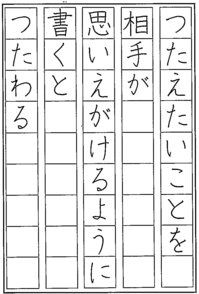 つたえたいことを
相手が
思いえがけるように
書くと
つたわる